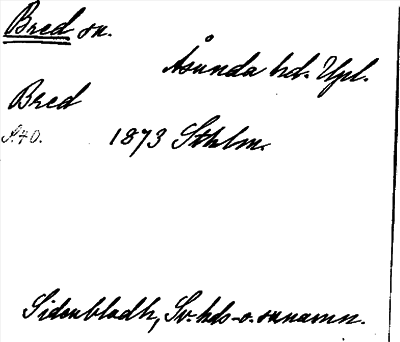 Bred sn.
Åsunda hd. Upl.
Bred
S. 40. 1873 Sthlm.
Sidenbladh, Sv. hds- o. snnamn.